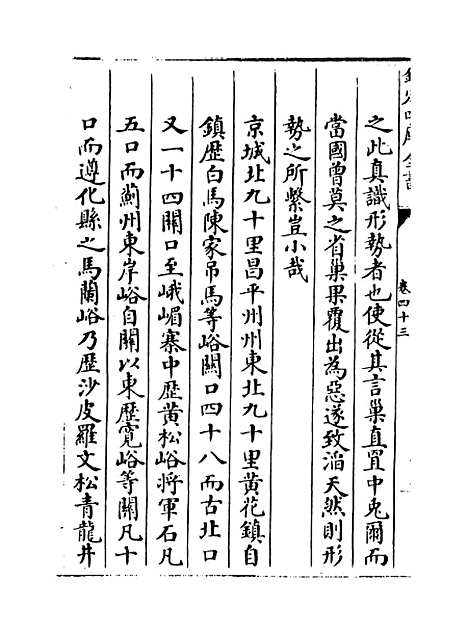 欽定四庫全書
卷四十三
之此真識形勢者也使從其言巢直罝中兎爾而
當國曾莫之省巢果覆出為惡遂致滔天然則形
勢之所繫豈小哉
京城北九十里昌平州州東北九十里黄花鎮自
鎮歴白馬陳家吊馬等峪關口四十八而古北口
又一十四關口至峨嵋寨中歴黄松峪將軍石凡
五口而薊州東岸峪自關以東歴寛峪等關凡十
口而遵化縣之馬蘭峪乃歴沙皮羅文松青龍井